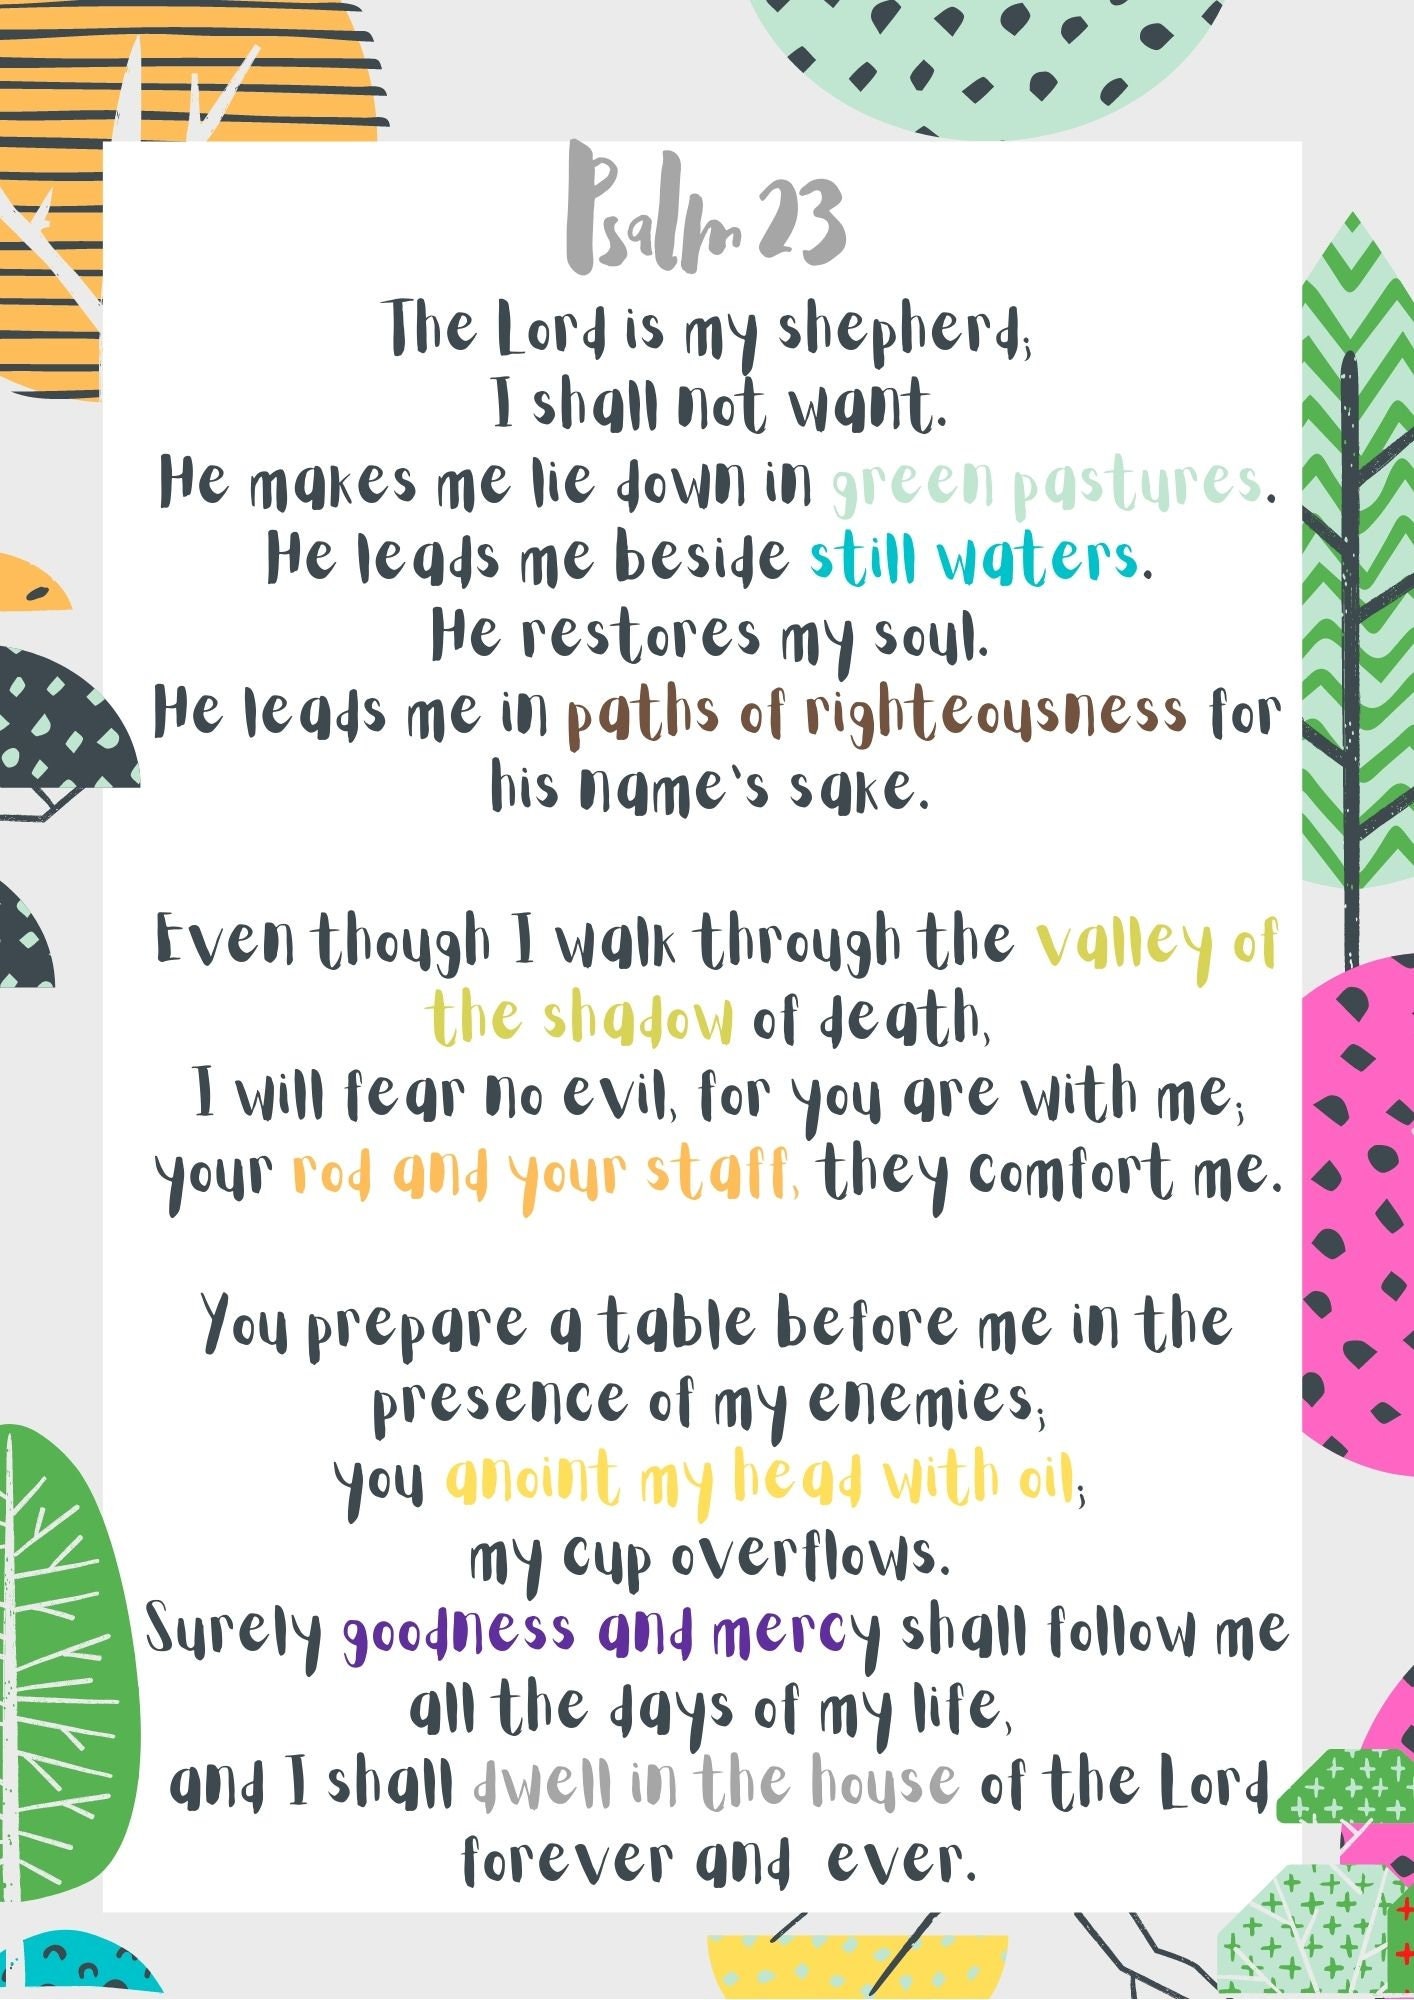 Psalm 23
The Lord is my shepherd;
I shall not want.
He makes me lie down in green pastures.
He leads me beside still waters.
He restores my soul.
He leads me in paths of righteousness for
his name's sake.
Even though I walk through the valley of
the shadow of death,
I will fear no evil, for you are with me;
your rod and your staff, they comfort me.
You prepare a table before me in the
presence of my enemies;
you anoint my head with oil;
my cup overflows.
Surely goodness and mercy shall follow me
all the days of my life,
and I shall dwell in the house of the Lord
forever and ever.